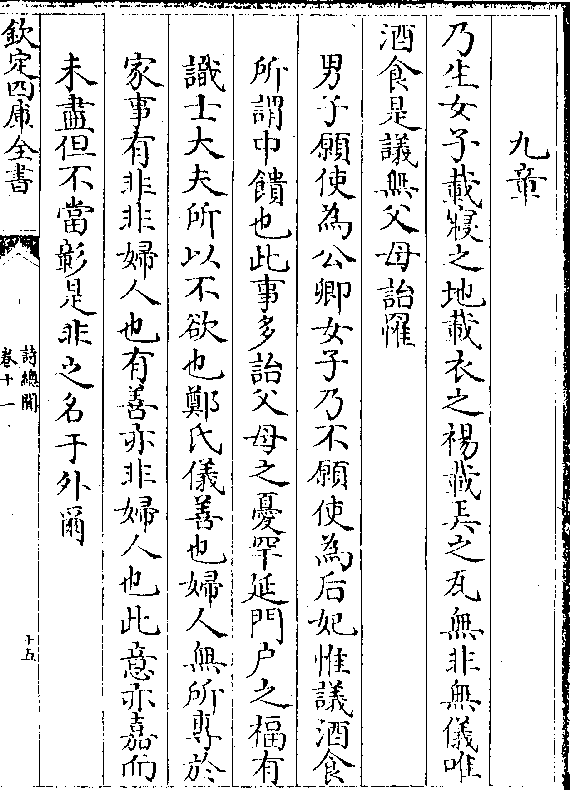 九章
乃生女子載寢之地載衣之裼載弄之瓦無非無儀唯
酒食是議無父母詒懼
男子願使為公卿女子乃不願使為后妃惟議酒食
所謂中饋也此事多詒父母之憂罕延門户之福有
識士大夫所以不欲也鄭氏儀善也婦人無所專於
家事有非非婦人也有善亦非婦人也此意亦嘉而
未盡但不當彰是非之名于外爾
欽定四庫全書
詩總聞
卷十一
十五